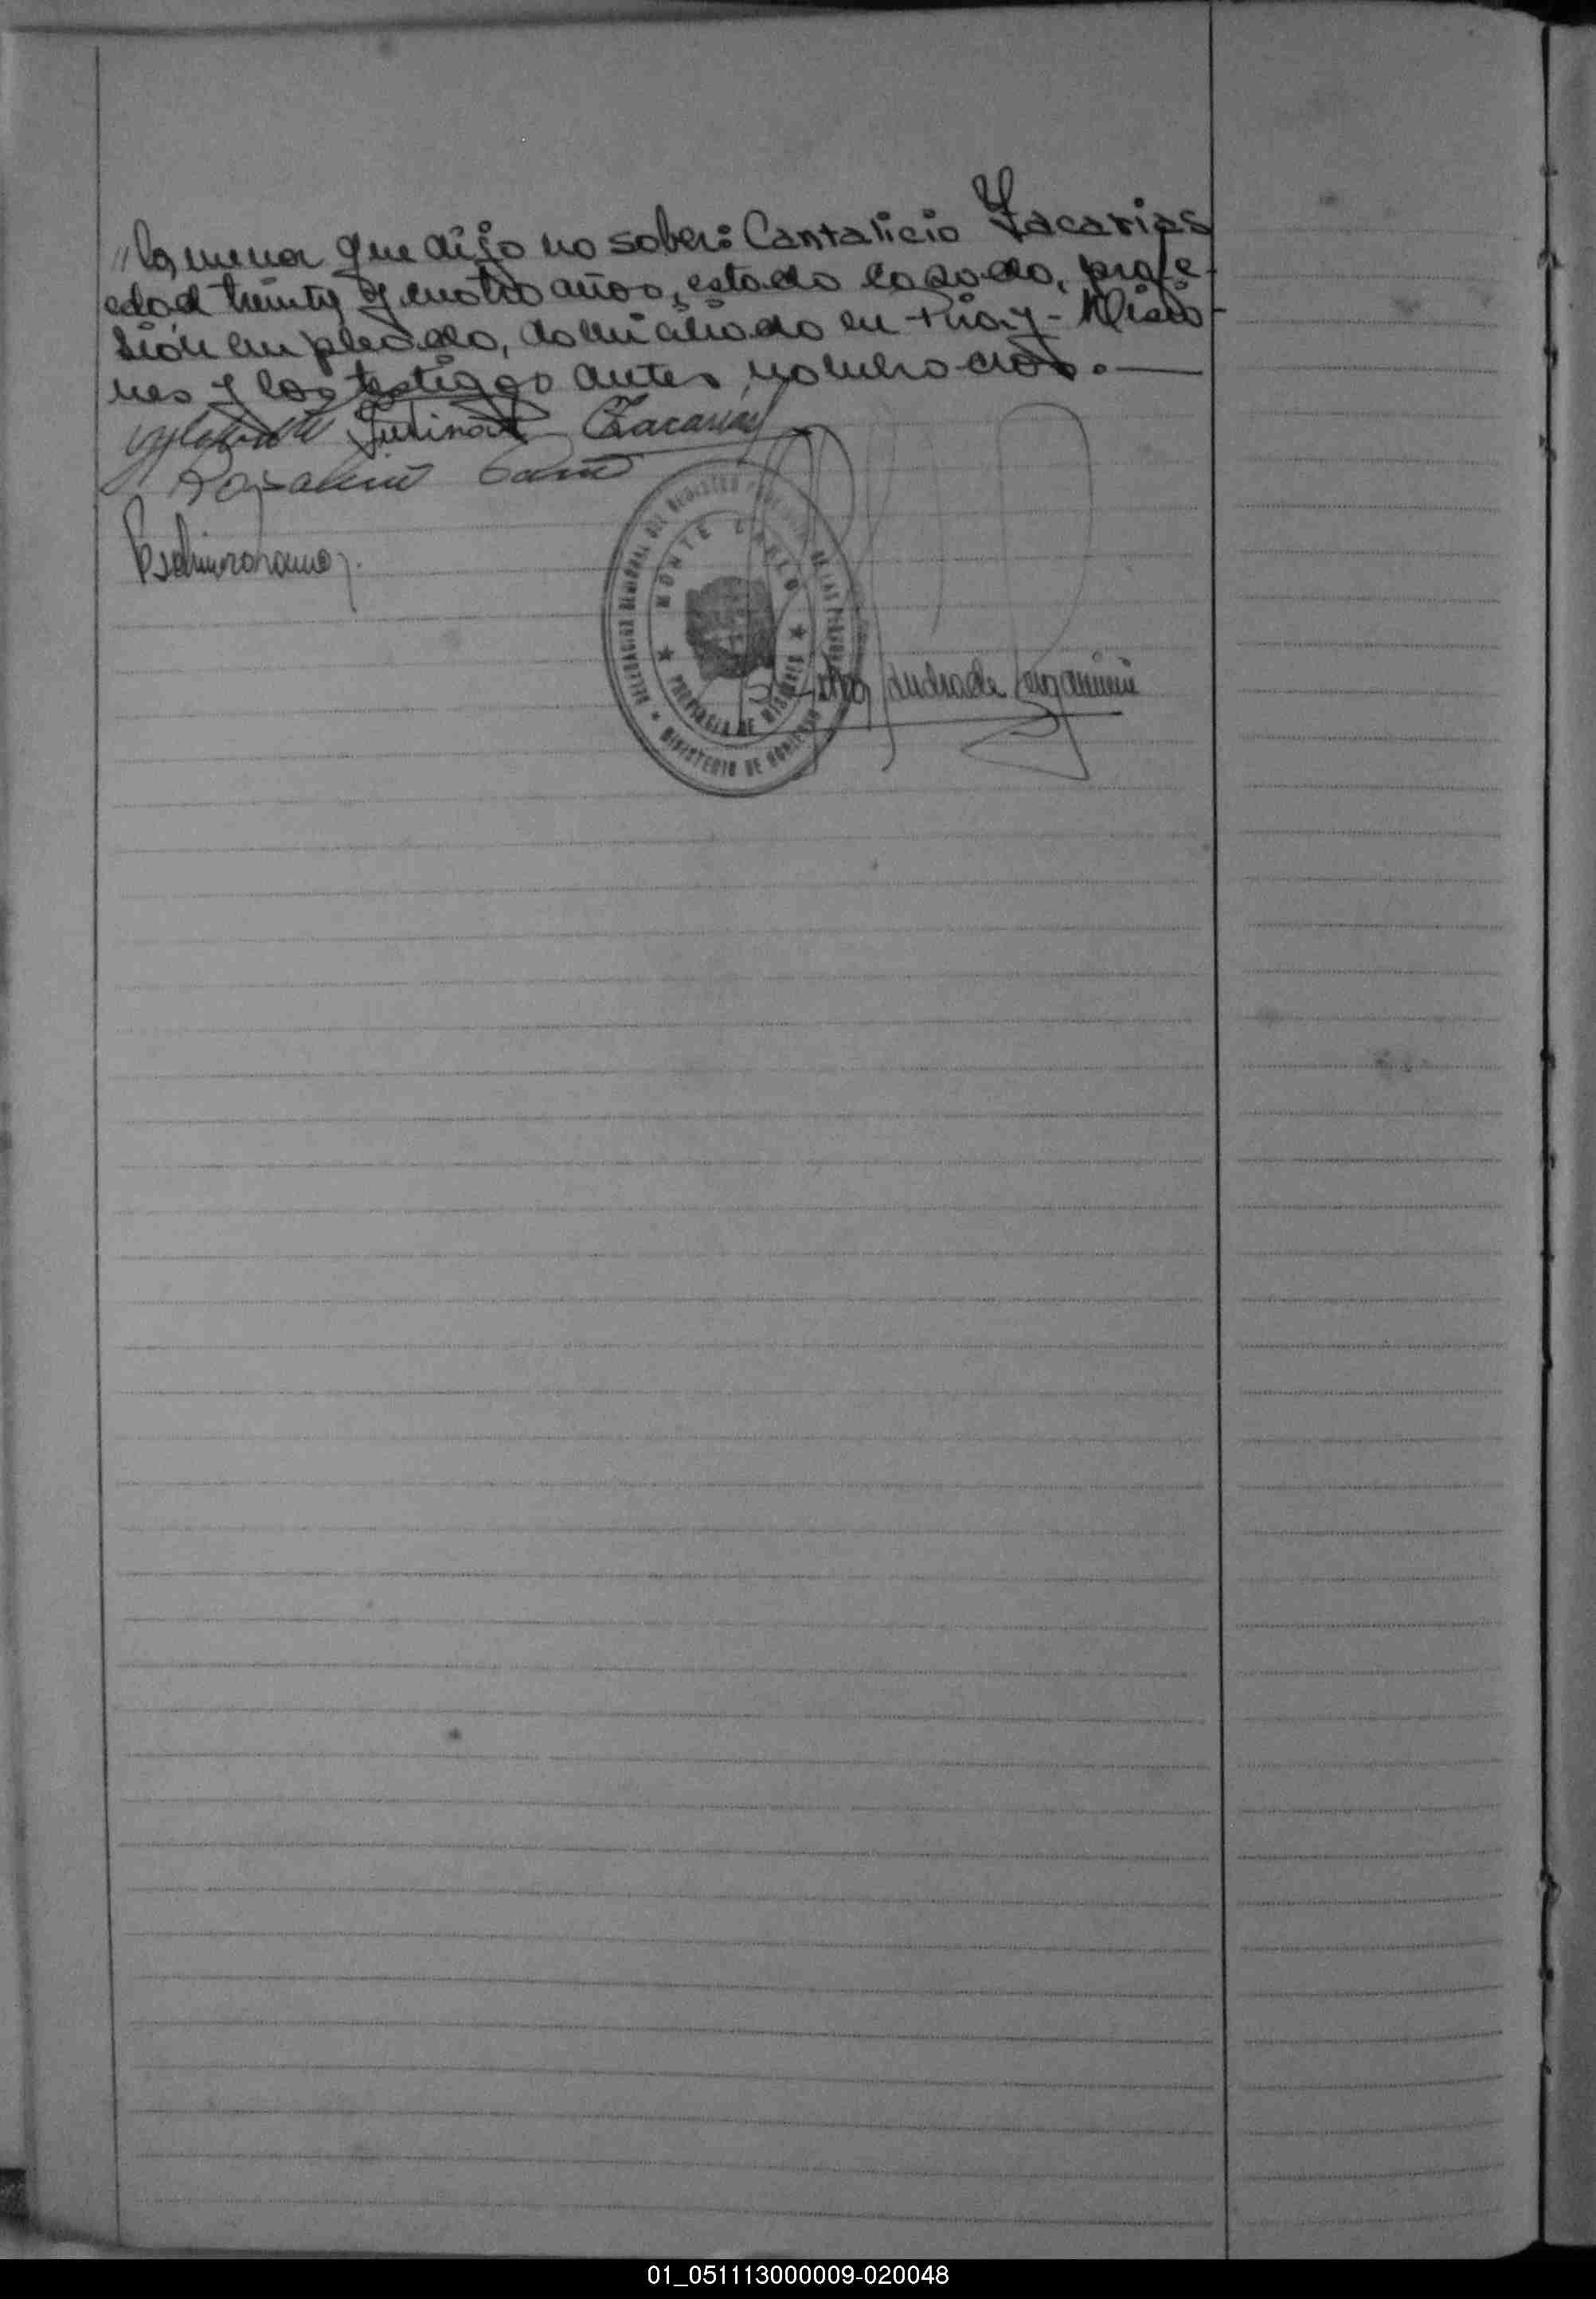 "la menor que dijo no saber: Cantalicio Zacarias
edad treinta y cuatro años, estado casado, profe-
sión empleado, domiciliado en Piray - Misio-
nes y los testigos antes nombrados.—
Zacarias
Rosalino
DELEGACION REGIONAL DEL REGISTRO PROVINCIAL DE LAS PERSONAS
MONTE CARLO
PROVINCIA DE MISIONES
MINISTERIO DE GOBIERNO
Andrade
01_051113000009-020048